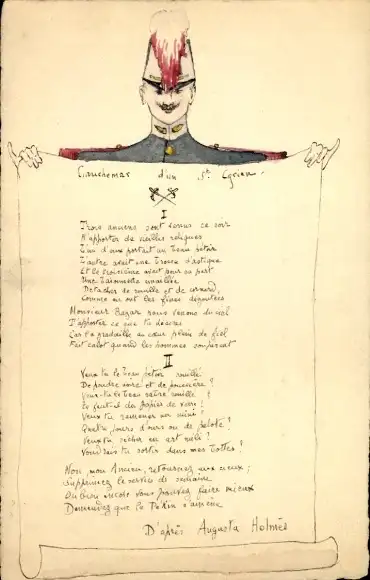 Cauchemar d'un St Cyrien.
I
Trois anciens sont venus ce soir
M'apporter de vieilles reliques
L'un d'eux portait un beau pétoir
L'autre avait une trousse d'astique
Et le troisième avait pour sa part
Une baïonnette
Détacher de rouille et de
Comme en ont les fines
Monsieur Bazar nous venons du ciel
T'apporter ce que tu désires
Car la pradaille au cœur plein de fiel
Fait calot quand les hommes soupirent
II
Veux tu le beau pétoir rouillé
De poudre noire et de poussière ?
Veux-tu le beau sabre rouillé ?
Et faut-il du papier de verre ?
Veux tu ramener un
Quatre jours d'ours ou de pelote ?
Veux tu sécher en art mili ?
Voudrais tu sortir dans mes bottes ?
Non, mon Ancien, retournez aux cieux ;
Supprimez le service de semaine
Ou bien encore vous pouvez faire mieux
Demandez que le Pékin s'amène
D'après Augusta Holmès